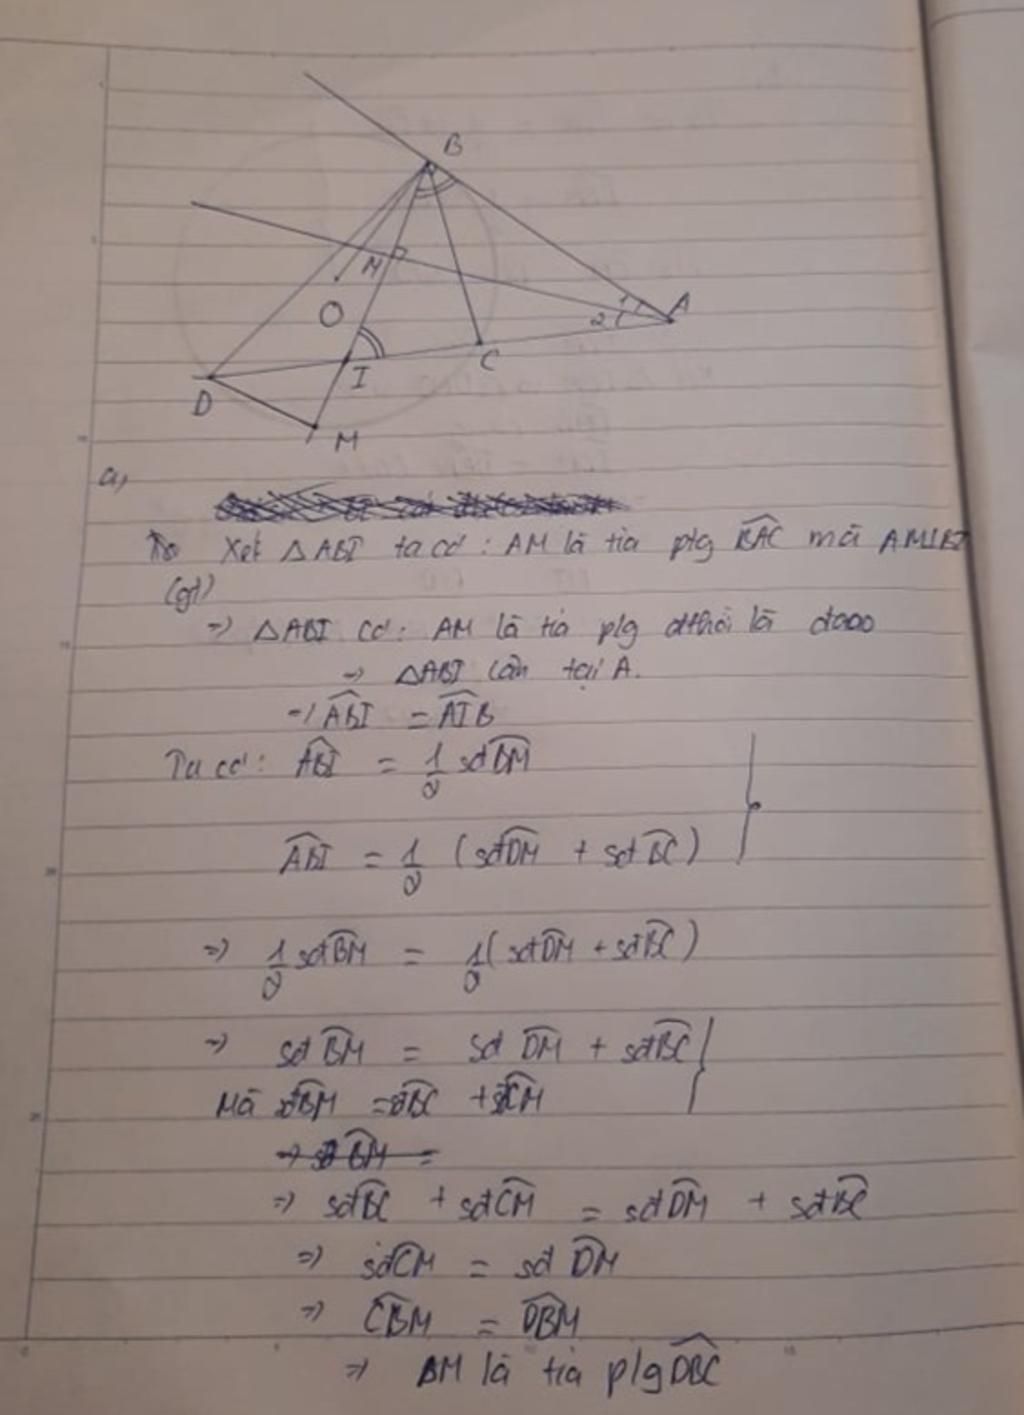 B
A
1
2
N
O
C
I
D
M
a,
Xét △ABI ta có: AM là tia p/g BAC mà AM⊥BI
(gt)
=> △ABI có: AM là tia p/g đthời là đcao
=> △ABI cân tại A.
=> ABI = AIB
Ta có: ABI = 1/2 sđBM
ABI = 1/2 (sđDM + sđBC)
=> 1/2 sđBM = 1/2 (sđDM + sđBC)
=> sđ BM = sđ DM + sđBC
Mà sđBM = sđBC + sđCM
=> sđ BM =
=> sđBC + sđCM = sđDM + sđBC
=> sđCM = sđ DM
=> CBM = DBM
=> BM là tia p/g DBC